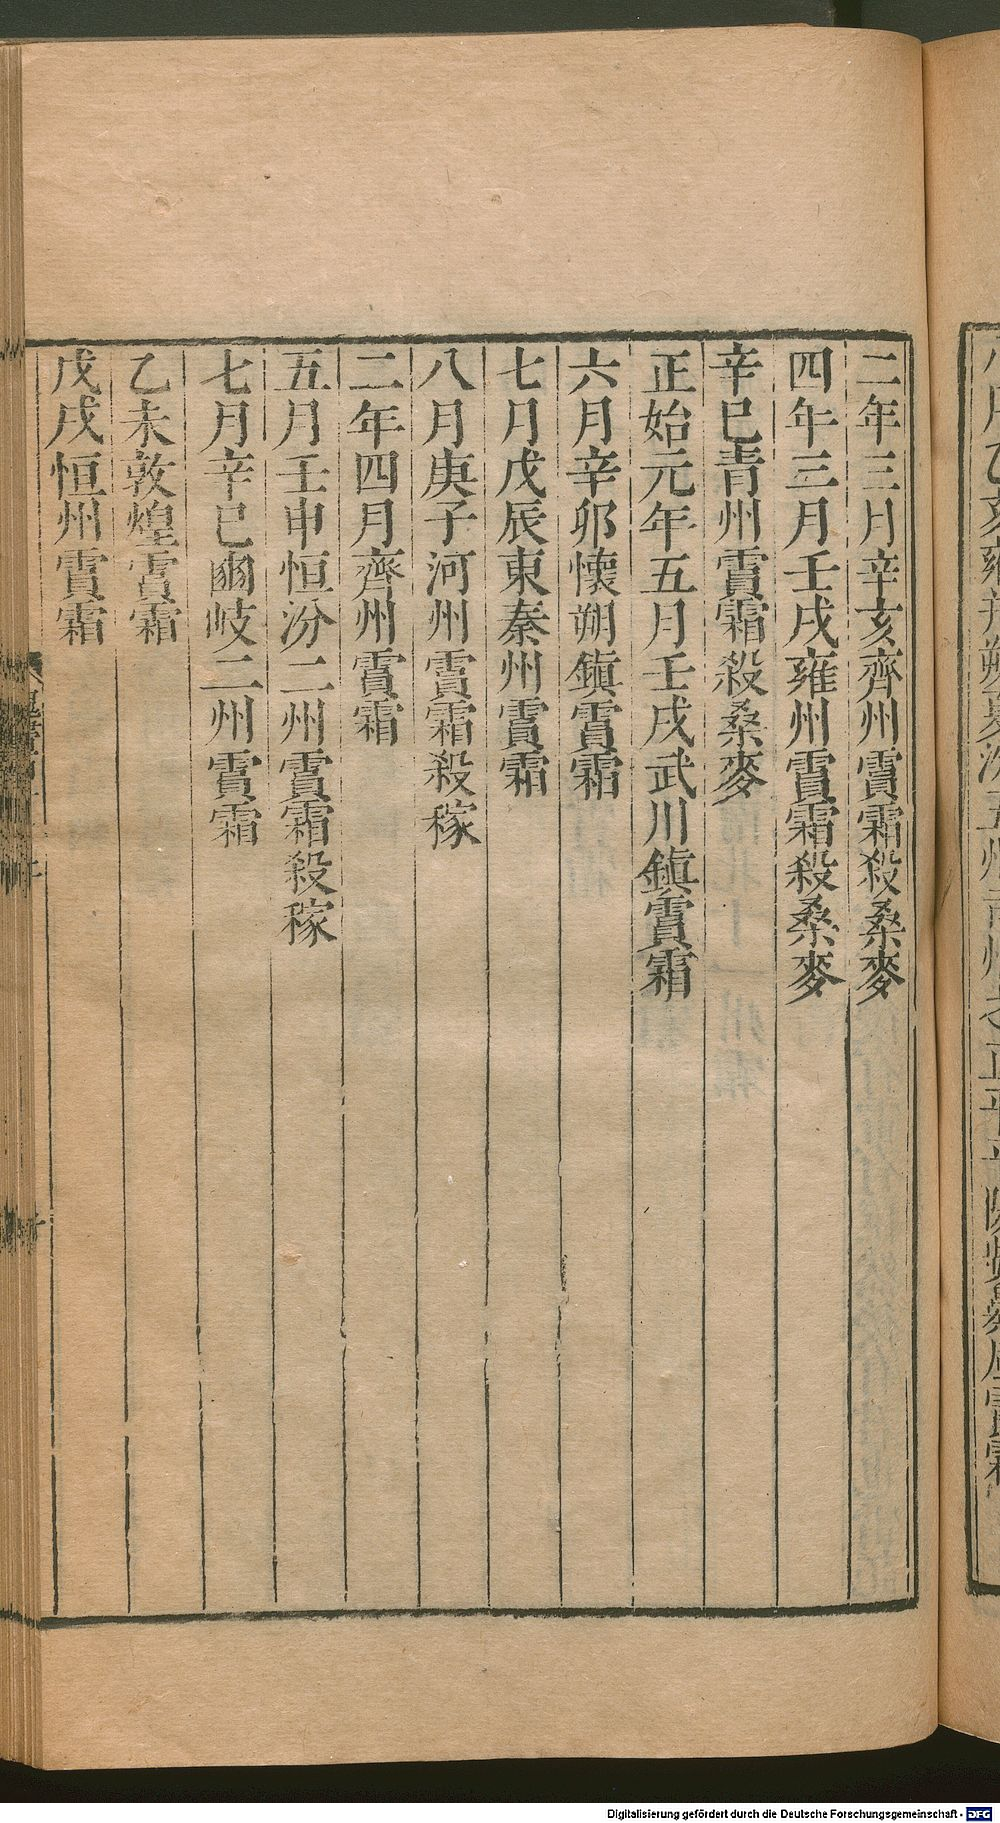 二年三月辛亥齊州霣霜殺桑麥
四年三月壬戌雍州霣霜殺桑麥
辛巳青州霣霜殺桑麥
正始元年五月壬戌武川鎮霣霜
六月辛卯懷朔鎮霣霜
七月戊辰東秦州霣霜
八月庚子河州霣霜殺稼
二年四月齊州霣霜
五月壬申恒汾二州霣霜殺稼
七月辛巳豳岐二州霣霜
乙未敦煌霣霜
戊戌恒州霣霜
Digitalisierung gefördert durch die Deutsche Forschungsgemeinschaft - DFG